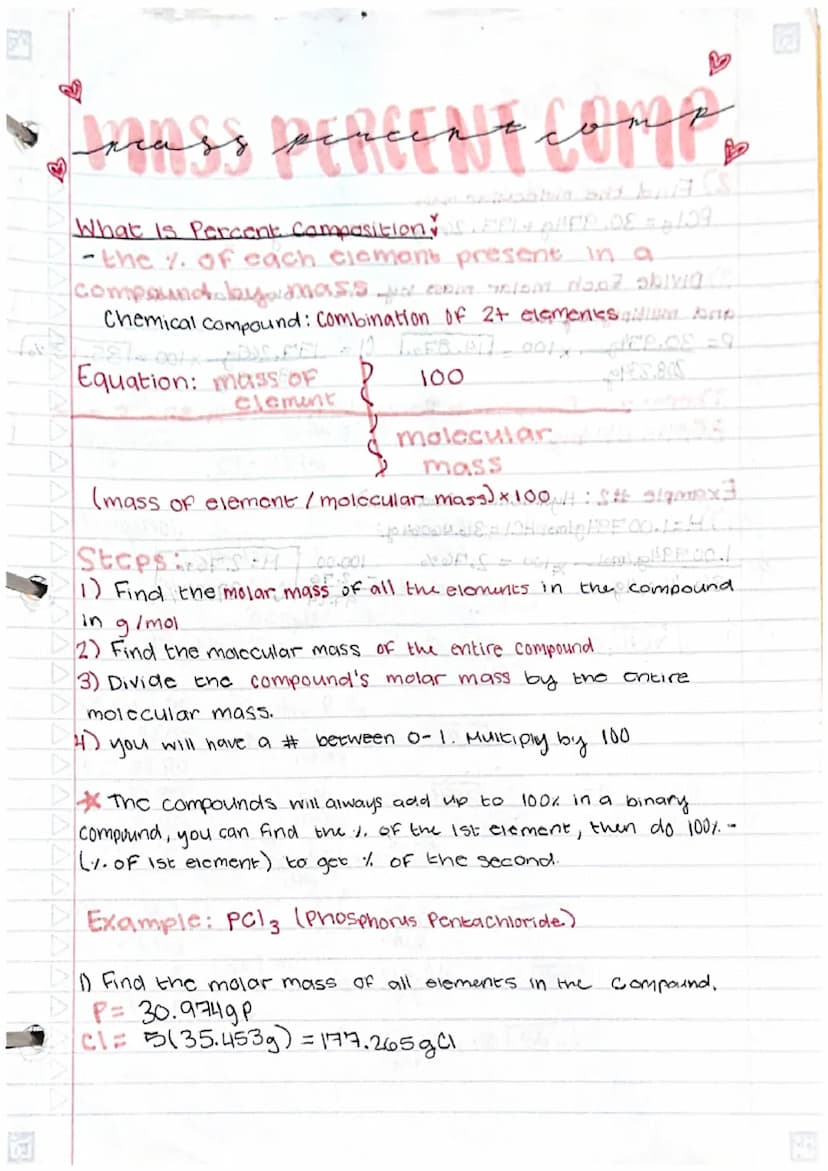 MASS PERCENT COMP
mass percent comp
What Is Percent Composition?
- the % of each element present in a
compound by mass
Chemical compound: Combination of 2+ elements
Equation: mass of element
100
molecular mass
(mass of element / molecular mass) x 100
Steps:
1) Find the molar mass of all the elements in the compound
in g/mol
2) Find the molecular mass of the entire compound
3) Divide the compound's molar mass by the entire
molecular mass.
4) you will have a # between 0-1. Multiply by 100
* The compounds will always add up to 100% in a binary
compound, you can find the % of the 1st element, then do 100% -
(% of 1st element) to get % of the second.
Example: PCl3 (Phosphorus Pentachloride)
1) Find the molar mass of all elements in the compound.
P= 30.974g P
Cl= 5(35.453g) = 177.265g Cl